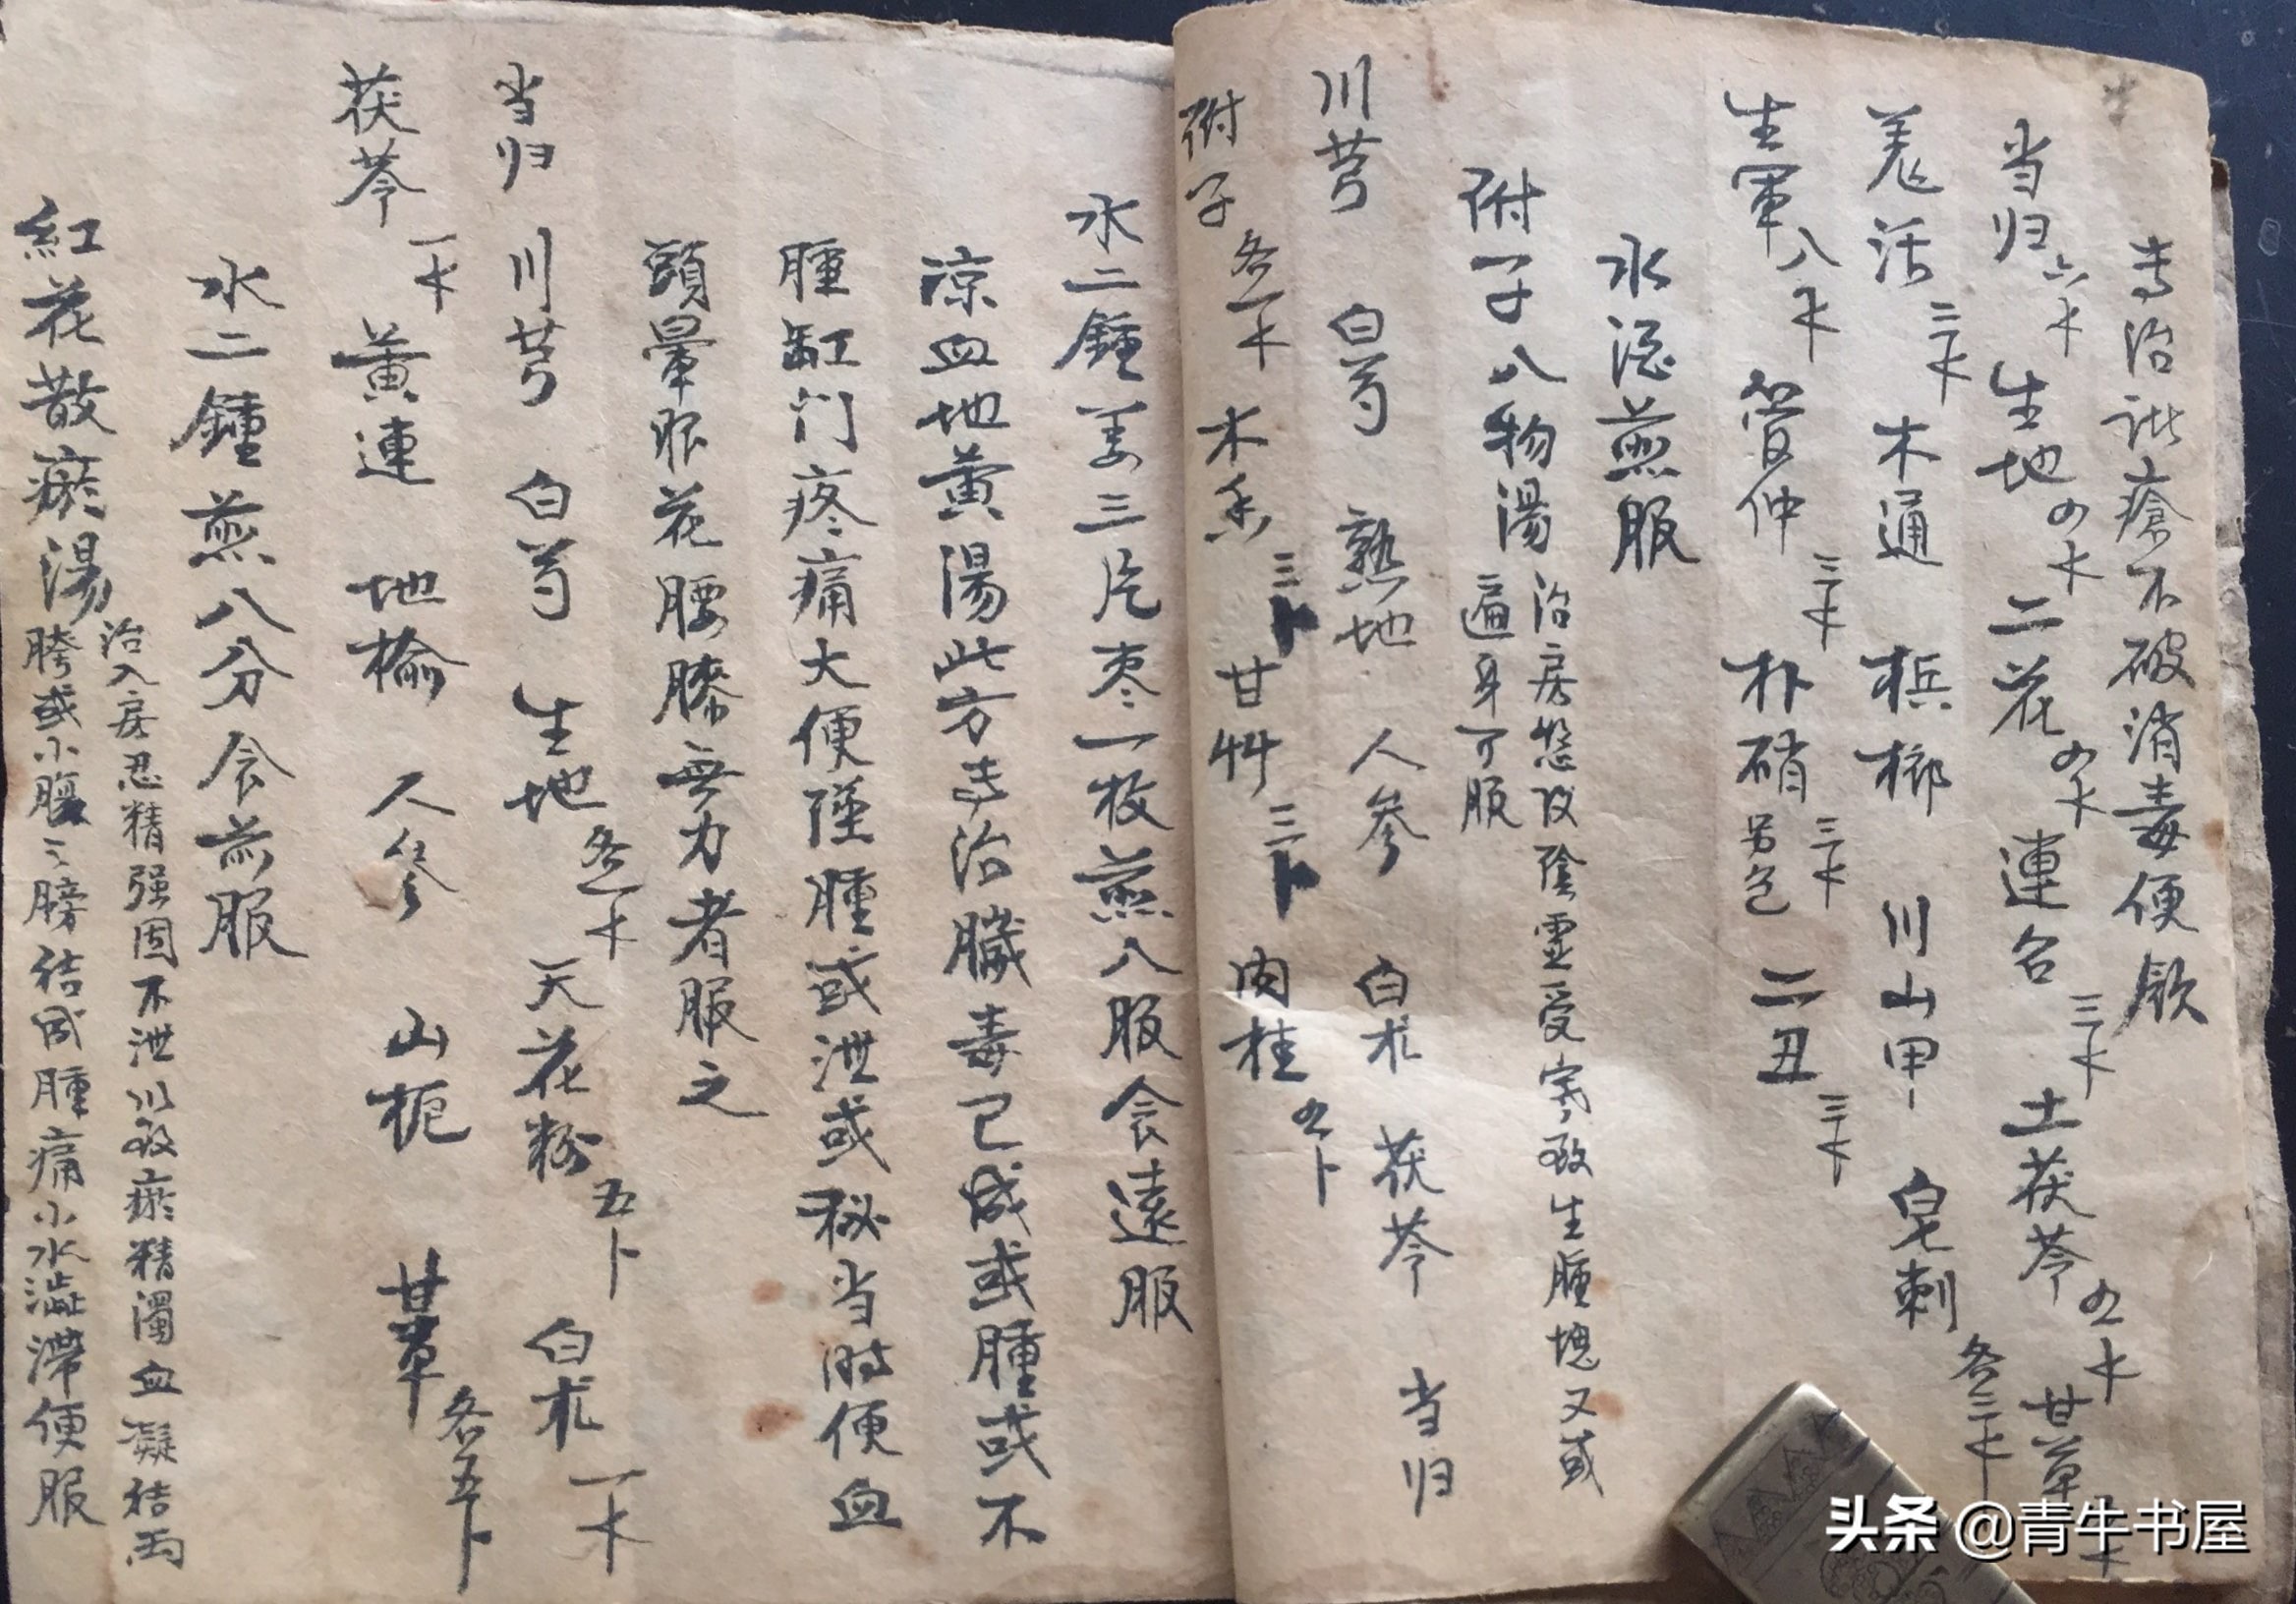 専治訛瘡不破消毒便飲
当归六木 生地四木 二花四木 連召三木 土茯苓四木 甘草
羌活三木 木通 梹榔 川山甲 皂刺各三木
生軍八木 管仲三木 朴硝三木另包 二丑三木
水酒煎服
附子八物湯 治房慾後陰虛受寒致生腫塊又或
三遍身可服
川芎 白芍 熟地 人參 白朮 茯苓 当归
附子各一木 木香三卜 甘艸三卜 肉桂四卜
水二鍾姜三片枣一枚煎八服食遠服
涼血地黄湯此方専治臟毒已成或腫或不
腫缸门疼痛大便墜腫或泄或秘当時便血
頭暈眼花腰膝無力者服之
当归 川芎 白芍 生地各一木 天花粉五卜 白朮一木
茯苓一木 黃連 地榆 人參 山栀 甘草各五卜
水二鍾煎八分食前服
紅花散瘀湯 治入房忍精强固不泄以致瘀精濁血凝结兩
胯或小腹之膀结成腫痛小水澁滞便服
头条 @青牛书屋